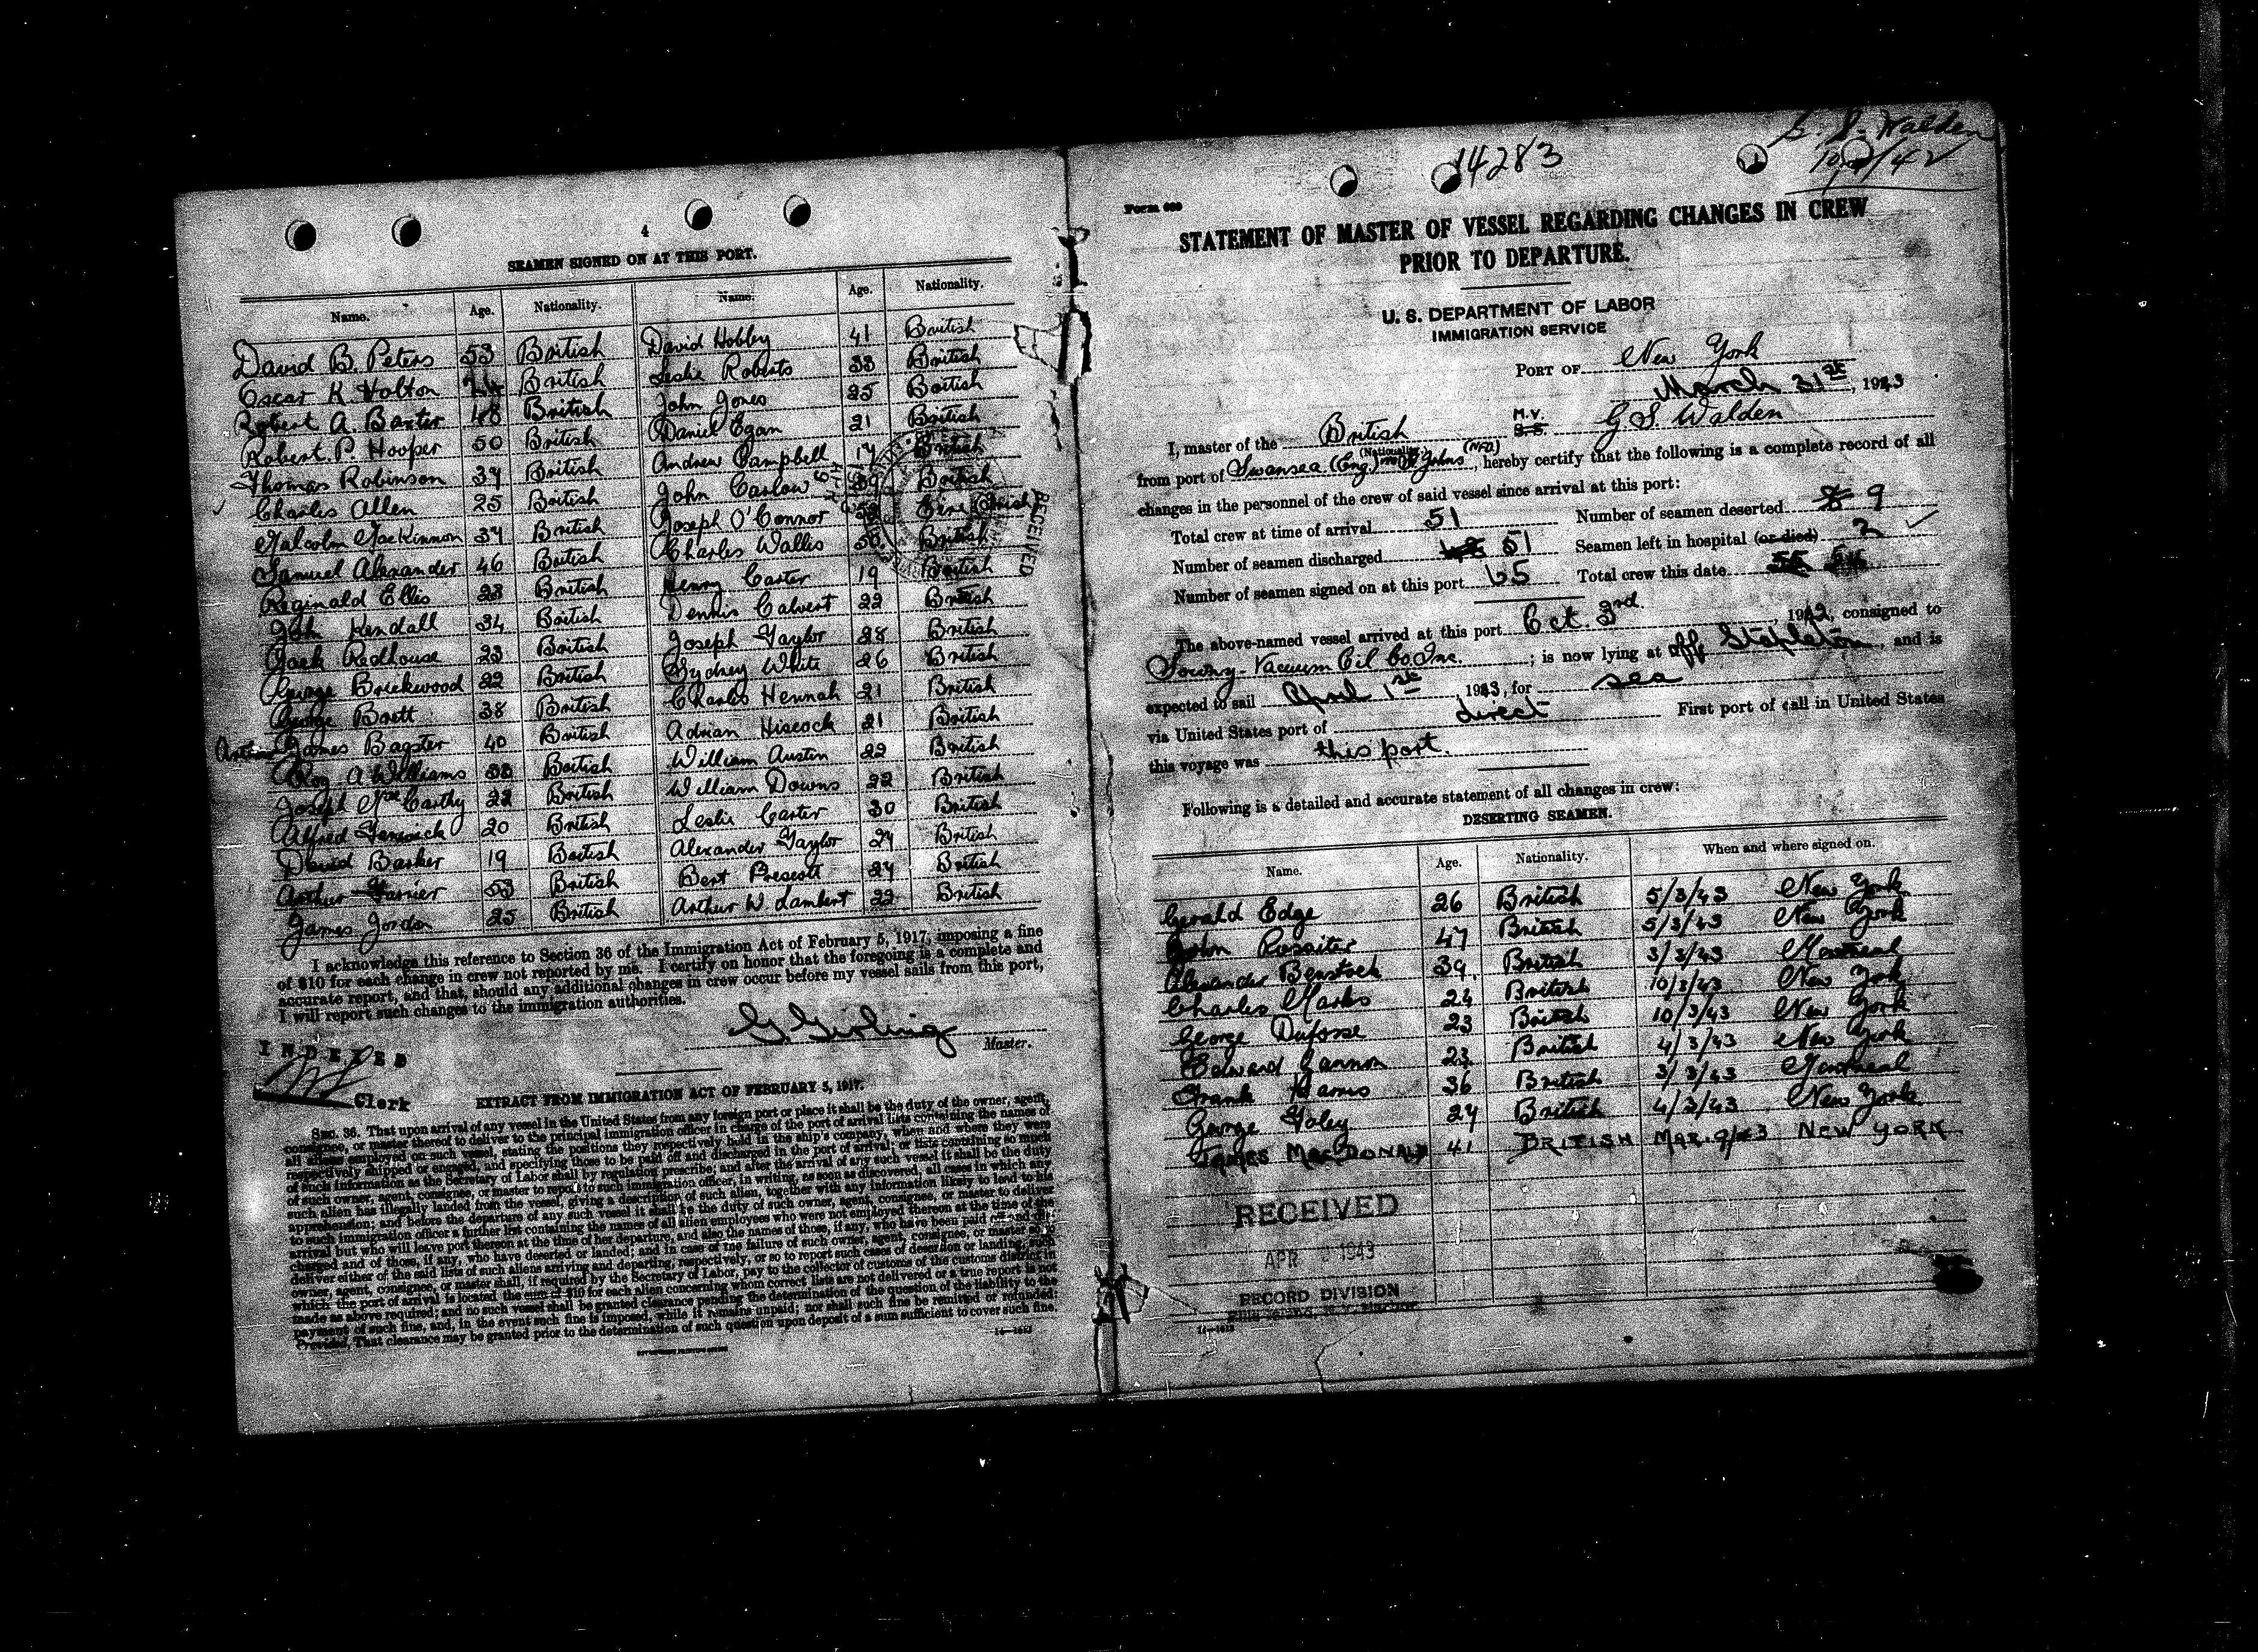 4
SEAMEN SIGNED ON AT THIS PORT.
Name. Age. Nationality. Name. Age. Nationality.
David B. Peters 53 British David Hobley 41 British
Oscar K. Holton 24 British Leslie Roberts 33 British
Robert A. Baxter 48 British John Jones 25 British
Robert P. Hooper 50 British Daniel Egan 21 British
Thomas Robinson 34 British Andrew Campbell 17 British
Charles Allen 25 British John Carlow 39 British
Malcolm MacKinnon 34 British Joseph O'Connor Eire (Irish)
Samuel Alexander 46 British Charles Wallis 50 British
Reginald Ellis 23 British Henry Carter 19 British
John Kendall 34 British Dennis Calvert 22 British
Jack Redhouse 23 British Joseph Taylor 28 British
George Brickwood 22 British Sydney White 26 British
George Brett 38 British Charles Hennah 21 British
James Bagster 40 British Adrian Hiscock 21 British
Roy A Williams 33 British William Austin 22 British
Joseph McCarthy 22 British William Downs 22 British
Alfred 20 British Leslie Carter 30 British
David Barker 19 British Alexander Taylor 24 British
Arthur 53 British Bert Prescott 24 British
James Jordon 25 British Arthur W. Lambert 22 British
RECEIVED
I acknowledge this reference to Section 36 of the Immigration Act of February 5, 1917, imposing a fine
of $10 for each change in crew not reported by me. I certify on honor that the foregoing is a complete and
accurate report, and that, should any additional changes in crew occur before my vessel sails from this port,
I will report such changes to the immigration authorities.
G. Girling
Master.
INDEXED
Clerk
EXTRACT FROM IMMIGRATION ACT OF FEBRUARY 5, 1917.
SEC. 36. That upon arrival of any vessel in the United States from any foreign port or place it shall be the duty of the owner, agent,
consignee, or master thereof to deliver to the principal immigration officer in charge of the port of arrival lists containing the names of
all aliens employed on such vessel, stating the positions they respectively hold in the ship's company, when and where they were
respectively shipped or engaged, and specifying those to be paid off and discharged in the port of arrival; or lists containing so much
of such information as the Secretary of Labor shall by regulation prescribe; and after the arrival of any such vessel it shall be the duty
of such owner, agent, consignee, or master to report to such immigration officer, in writing, as soon as discovered, all cases in which any
such alien has illegally landed from the vessel, giving a description of such alien, together with any information likely to lead to his
apprehension; and before the departure of any such vessel it shall be the duty of such owner, agent, consignee, or master to deliver
to such immigration officer a further list containing the names of all alien employees who were not employed thereon at the time of the
arrival but who will leave port thereon at the time of her departure, and also the names of those, if any, who have been paid off and dis-
charged and of those, if any, who have deserted or landed; and in case of the failure of such owner, agent, consignee, or master so to
deliver either of the said lists of such aliens arriving and departing, respectively, or so to report such cases of desertion or landing, such
owner, agent, consignee, or master shall, if required by the Secretary of Labor, pay to the collector of customs of the customs district in
which the port of arrival is located the sum of $10 for each alien concerning whom correct lists are not delivered or a true report is not
made as above required; and no such vessel shall be granted clearance pending the determination of the question of the liability to the
payment of such fine, and, in the event such fine is imposed, while it remains unpaid; nor shall such fine be remitted or refunded:
Provided, That clearance may be granted prior to the determination of such question upon deposit of a sum sufficient to cover such fine.
G. S. Walden
14283
Form
STATEMENT OF MASTER OF VESSEL REGARDING CHANGES IN CREW
PRIOR TO DEPARTURE.
U. S. DEPARTMENT OF LABOR
IMMIGRATION SERVICE
PORT OF New York
March 31st, 1943
I, master of the British M.V. S.S. G S. Walden
(Nationality) (NFD)
from port of Swansea (Eng.) St Johns, hereby certify that the following is a complete record of all
changes in the personnel of the crew of said vessel since arrival at this port:
Total crew at time of arrival 51 Number of seamen deserted 8 9
Number of seamen discharged 51 Seamen left in hospital (or died) 2
Number of seamen signed on at this port 65 Total crew this date 55 54
The above-named vessel arrived at this port Oct. 3rd, 1942, consigned to
Socony-Vacuum Oil Co. Inc.; is now lying at off Stapleton, and is
expected to sail April 1st, 1943, for sea
via United States port of direct First port of call in United States
this voyage was this port.
Following is a detailed and accurate statement of all changes in crew:
DESERTING SEAMEN.
Name. Age. Nationality. When and where signed on.
Gerald Edge 26 British 5/3/43 New York
John Rossiter 47 British 5/3/43 New York
Alexander Benstock 39 British 3/3/43 Montreal
Charles Marks 24 British 10/3/43 New York
George Dufosse 23 British 10/3/43 New York
Edward Cannon 23 British 4/3/43 New York
Frank 36 British 3/3/43 Montreal
George Foley 24 British 4/3/43 New York
JAMES MACDONALD 41 BRITISH MAR. 9/43 NEW YORK
RECEIVED
APR 1943
RECORD DIVISION